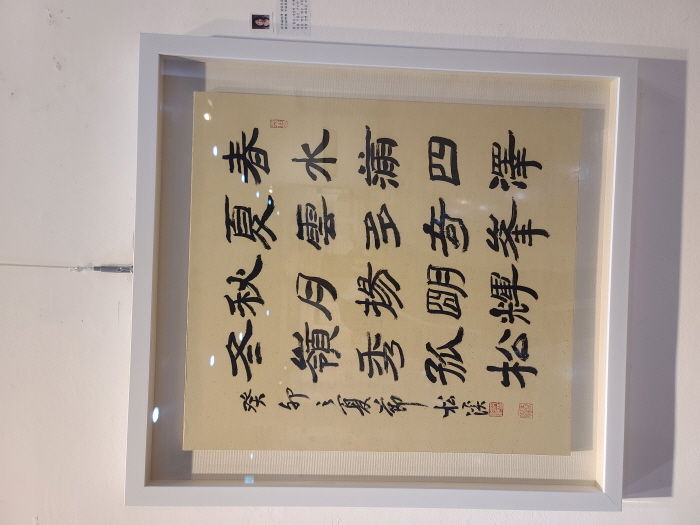 春水滿四澤
夏雲多奇峯
秋月揚朙輝
冬嶺秀孤松
癸卯之夏節 松溪